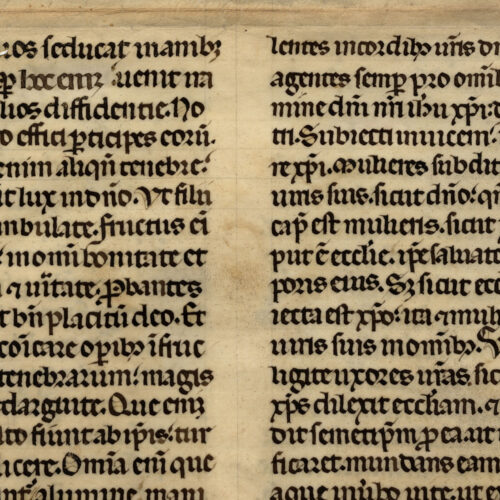 uos seducat inanibꝫ
ꝑ hec eniꝫ uenit ira
lios diffidentie. No
o effici ꝑticipes eorū.
enim aliqn̄ tenebre.
t lux in dn̄o. Vt filii
mbulate. fructus eī
in omni bonitate et
a ⁊ ūitate, ꝓbantes
t bn̄placitū deo. Et
cōicare oꝑibꝫ īfruc
tenebrarum. magis
edarguite. Que eniꝫ
lto fiunt ab ip̄is. tur
licere. Omīa enī que
unt. a lumine mani
lentes in cordibꝫ ur̄is dn
agentes semꝑ pro omībꝫ
mine dn̄i nr̄i ih̄u xp̄i. d
tri. Subiecti inuicem.
re xp̄i. Mulieres subdit
uiris suis. sicut dn̄o. qn
cap̄ est mulieris. sicut x
put ē ecclīe. ip̄e saluato
poris eius. Sꝫ sicut ecc
iecta est xp̄o. ita ⁊ muli
uiris suis in omībꝫ. V
ligite uxores ur̄as, sic
xp̄s dilexit eccliam. ⁊
dit semetip̄m ꝓ ea. ut i
ficaret. mundans eam
aque in ūbo uite. ut ex